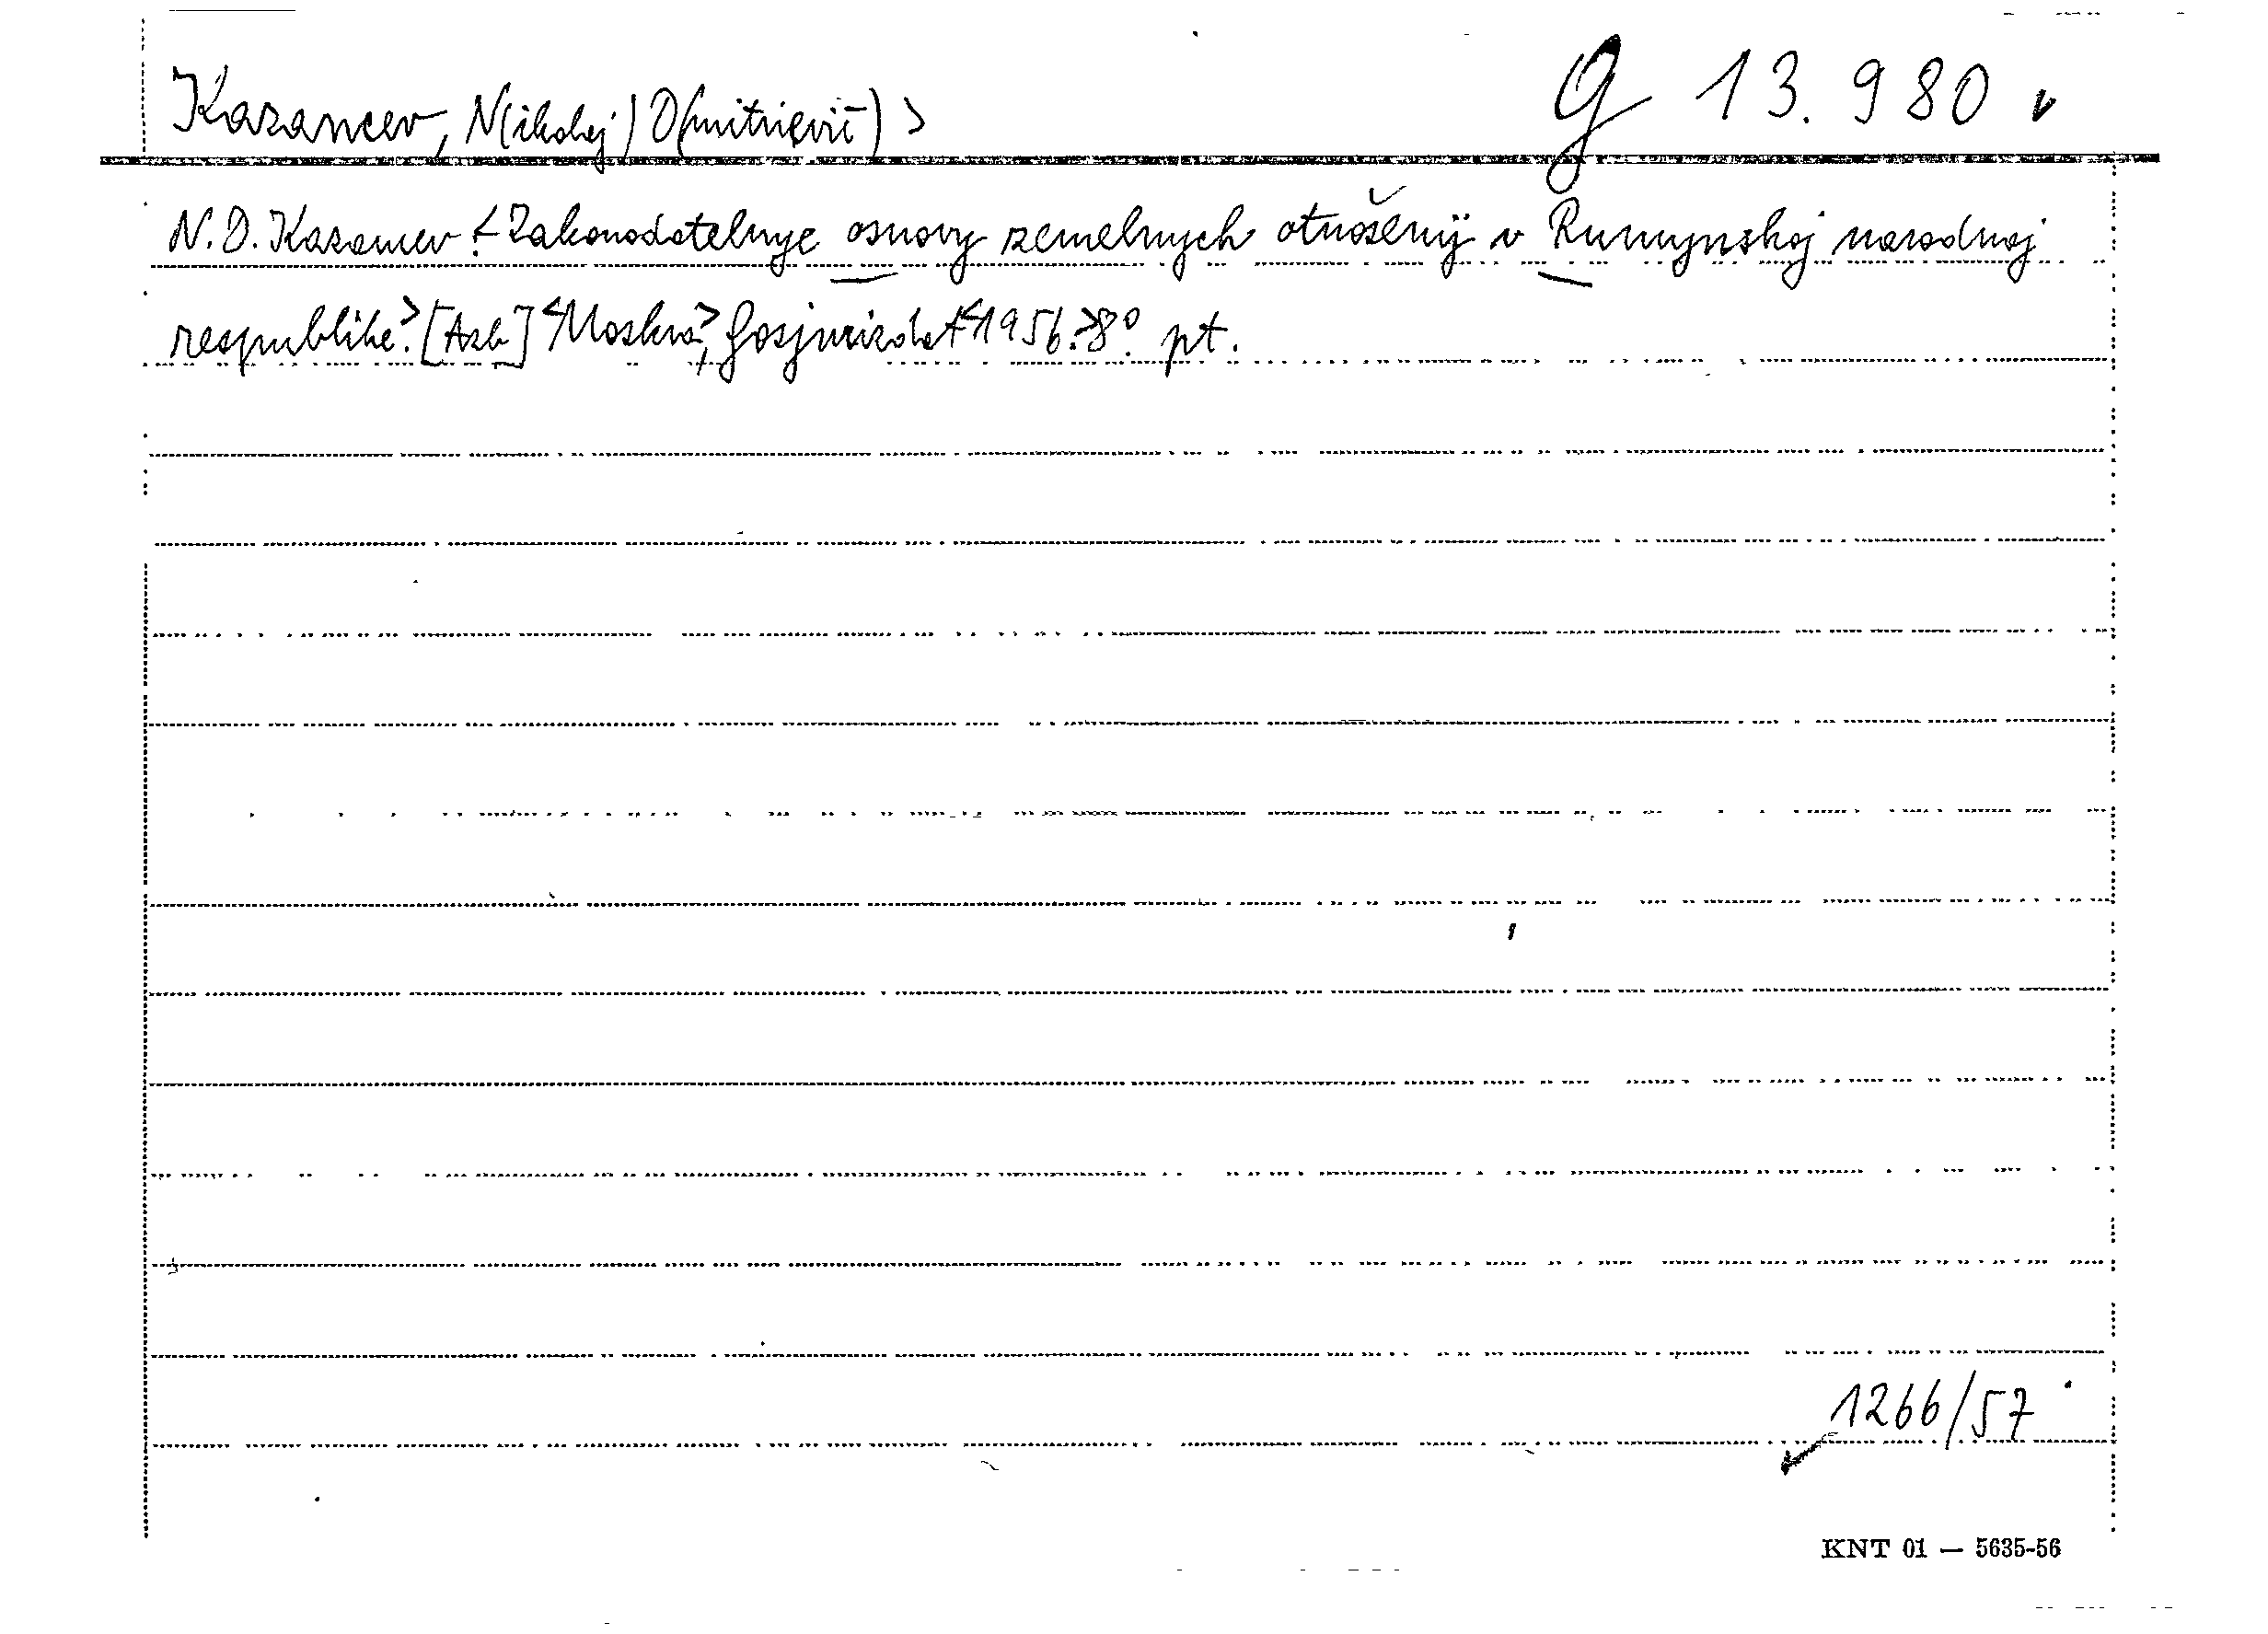 Kazancev, N(ikolaj) D(mitrievič) > G 13.980
N. D. Kazancev: <Zakonodatelnye osnovy zemelnych otnošenij v Rumynskoj narodnoj
respublike.> [Azb] <Moskva>, Gosjurizdat <1956.> 8° pt.
1266/57
KNT 01 — 5635-56